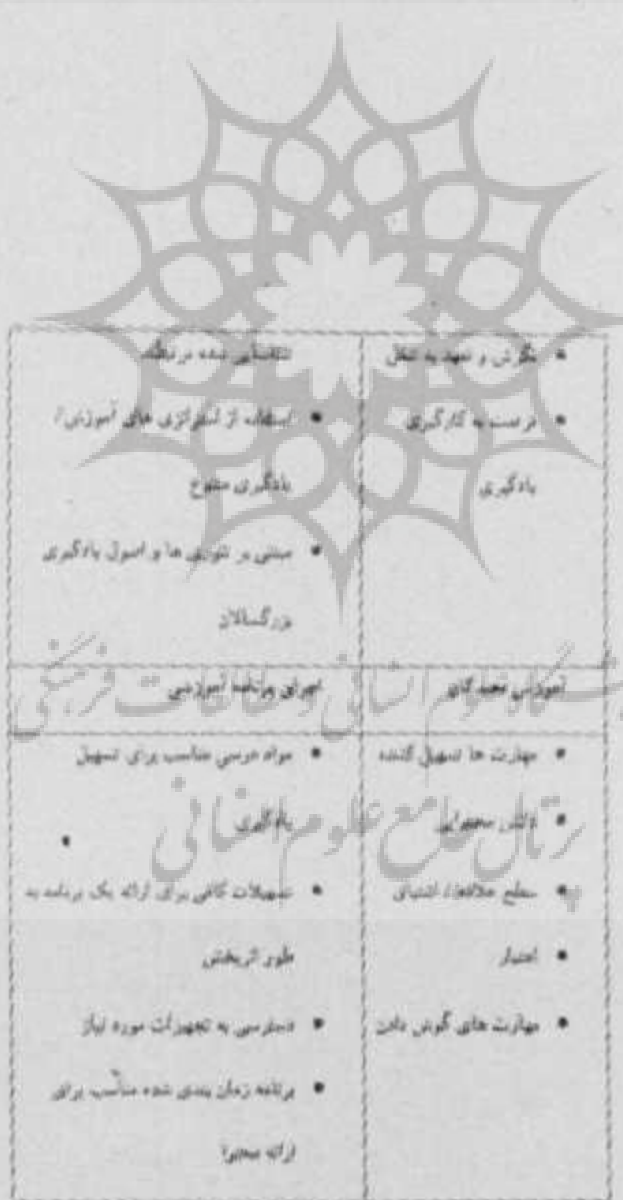 نگرش و تعهد به شغل
فرصت به کارگیری
یادگیری
شناسایی شده مرتبط
استفاده از استراتژی های آموزش/
یادگیری متنوع
مبتنی بر تئوری ها و اصول یادگیری
بزرگسالان
آموزش دهندگان
مهارت ها تسهیل کننده
دانش محتوایی
سطح علاقه/ اشتیاق
اعتبار
مهارت های گوش دادن
اجرای برنامه آموزشی
مواد درسی مناسب برای تسهیل
یادگیری
تسهیلات کافی برای ارائه یک برنامه به
طور اثربخش
دسترسی به تجهیزات مورد نیاز
برنامه زمان بندی شده مناسب برای
ارائه محتوا
علوم انسانی و مطالعات فرهنگی
پرتال جامع علوم انسانی